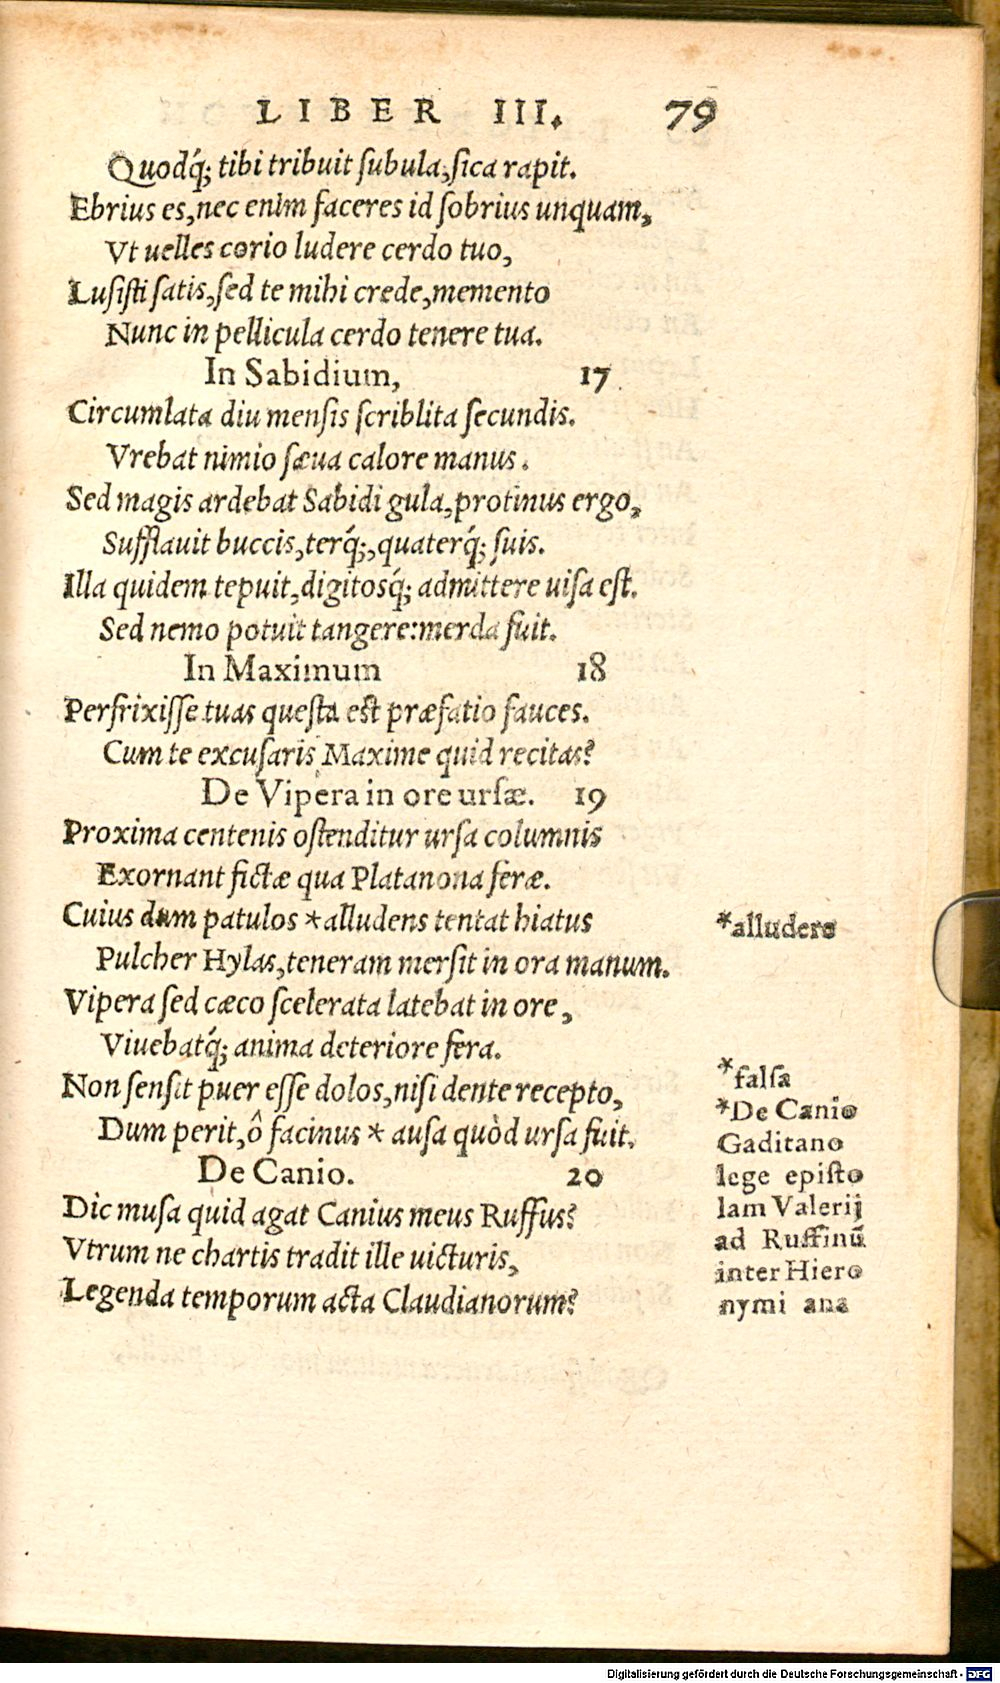 LIBER III. 79
Quodq́; tibi tribuit ſubula, ſica rapit.
Ebrius es, nec enim faceres id ſobrius unquam,
Vt uelles corio ludere cerdo tuo,
Luſiſti ſatis, ſed te mihi crede, memento
Nunc in pellicula cerdo tenere tua.
In Sabidium, 17
Circumlata diu menſis ſcriblita ſecundis.
Vrebat nimio ſæua calore manus.
Sed magis ardebat Sabidi gula, protinus ergo,
Sufflauit buccis, terq́;, quaterq́; ſuis.
Illa quidem tepuit, digitosq́; admittere uiſa eſt.
Sed nemo potuit tangere: merda fuit.
In Maximum 18
Perfrixiſſe tuas queſta eſt præfatio fauces.
Cum te excuſaris Maxime quid recitas?
De Vipera in ore urſæ. 19
Proxima centenis oſtenditur urſa columnis
Exornant fictæ qua Platanona feræ.
Cuius dum patulos *alludens tentat hiatus
*alludere
Pulcher Hylas, teneram merſit in ora manum.
Vipera ſed cæco ſcelerata latebat in ore,
Viuebatq́; anima deteriore fera.
Non ſenſit puer eſſe dolos, niſi dente recepto,
Dum perit, ô facinus * auſa quòd urſa fuit.
*falſa
De Canio. 20
Dic muſa quid agat Canius meus Ruffus?
Vtrum ne chartis tradit ille uicturis,
Legenda temporum acta Claudianorum?
*De Canio
Gaditano
lege epiſto
lam Valerij
ad Ruffinū
inter Hiero
nymi ana
Digitalisierung gefördert durch die Deutsche Forschungsgemeinschaft - DFG